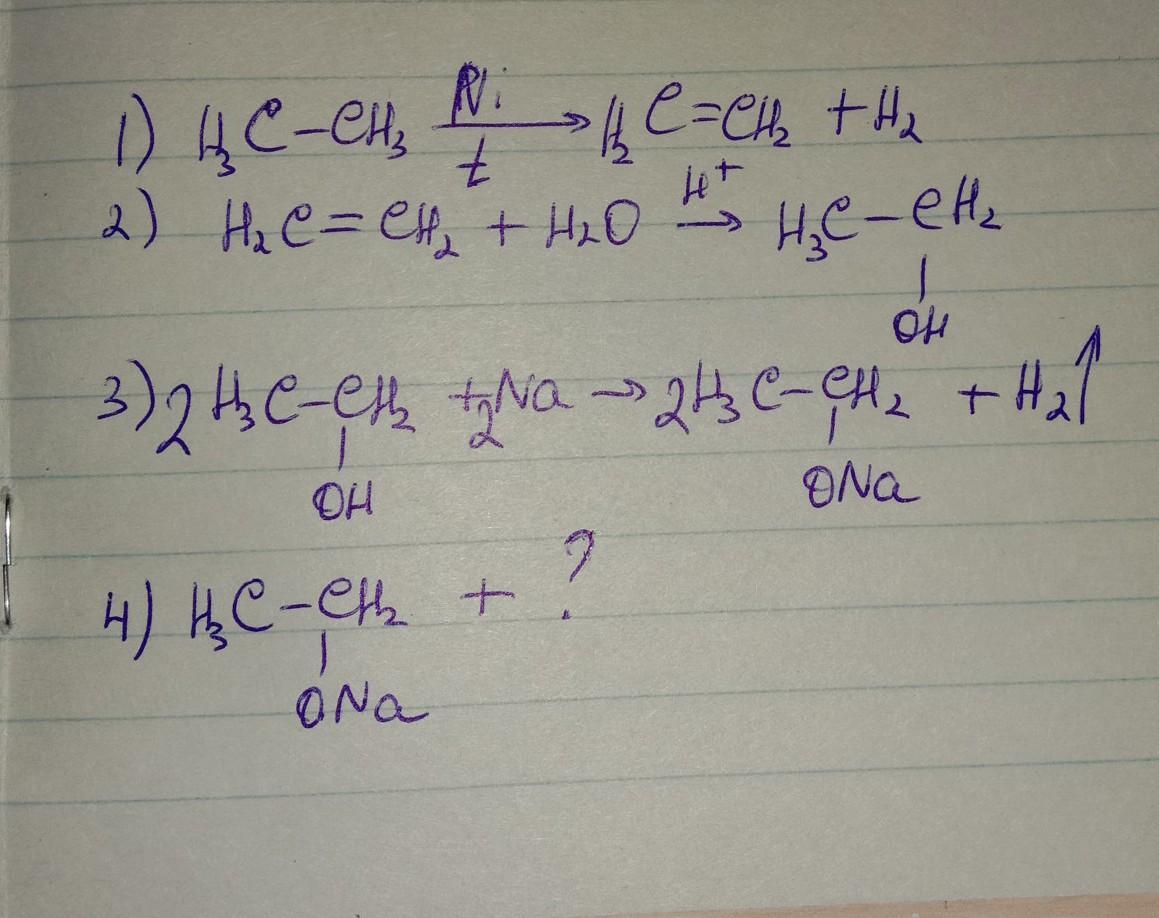 Ni
1) H₃C–CH₃ → H₂C=CH₂ + H₂
t
H⁺
2) H₂C=CH₂ + H₂O → H₃C–CH₂
|
OH
3) 2H₃C–CH₂ + 2Na → 2H₃C–CH₂ + H₂↑
| |
OH ONa
4) H₃C–CH₂ + ?
|
ONa